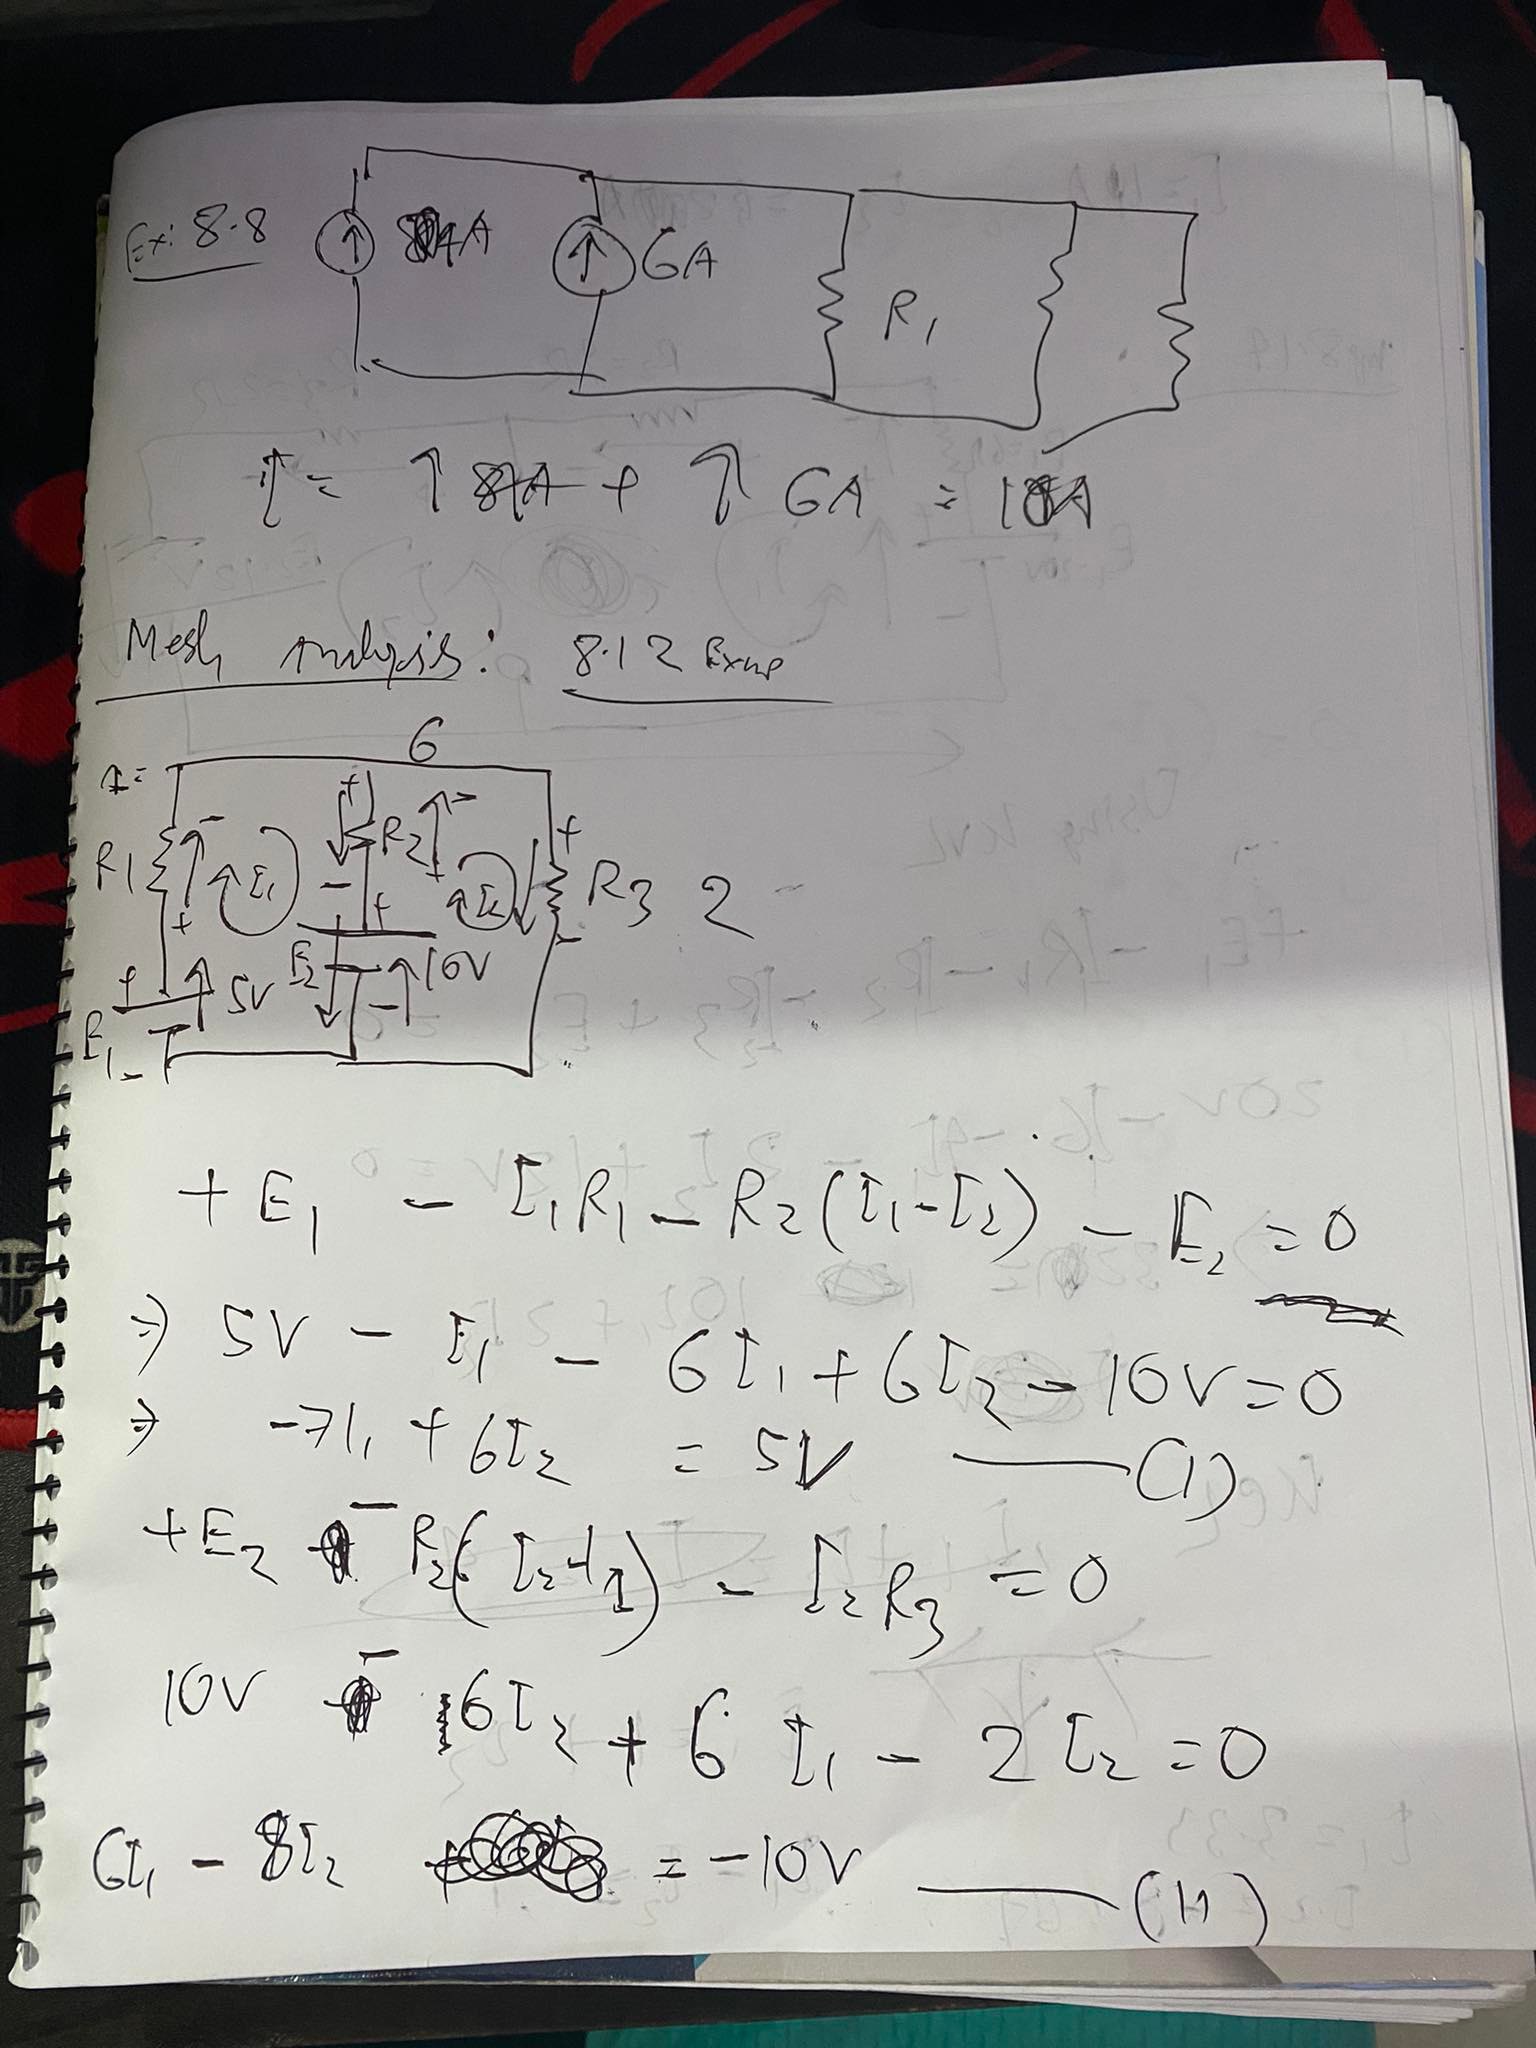 Ex: 8.8
4A
6A
R1
I = ↑ 4A + ↑ 6A = 10A
Mesh Analysis: 8.12 Exmp
6
1=
R1
I1
R2
I2
R3 2
E1
5V
E2
10V
+E1 - I1R1 - R2(I1-I2) - E2 = 0
⇒ 5V - I1 - 6I1 + 6I2 - 10V = 0
⇒ -7I1 + 6I2 = 5V —— (I)
+E2 - R2(I2-I1) - I2R3 = 0
10V - 6I2 + 6I1 - 2I2 = 0
6I1 - 8I2 = -10V —— (II)